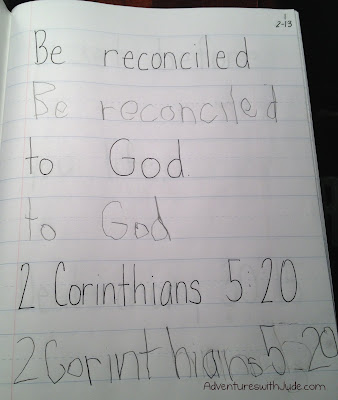 1
2-13
Be reconciled
Be reconciled
to God.
to God
2 Corinthians 5:20
2 Corinthians 5:20
AdventureswithJude.com